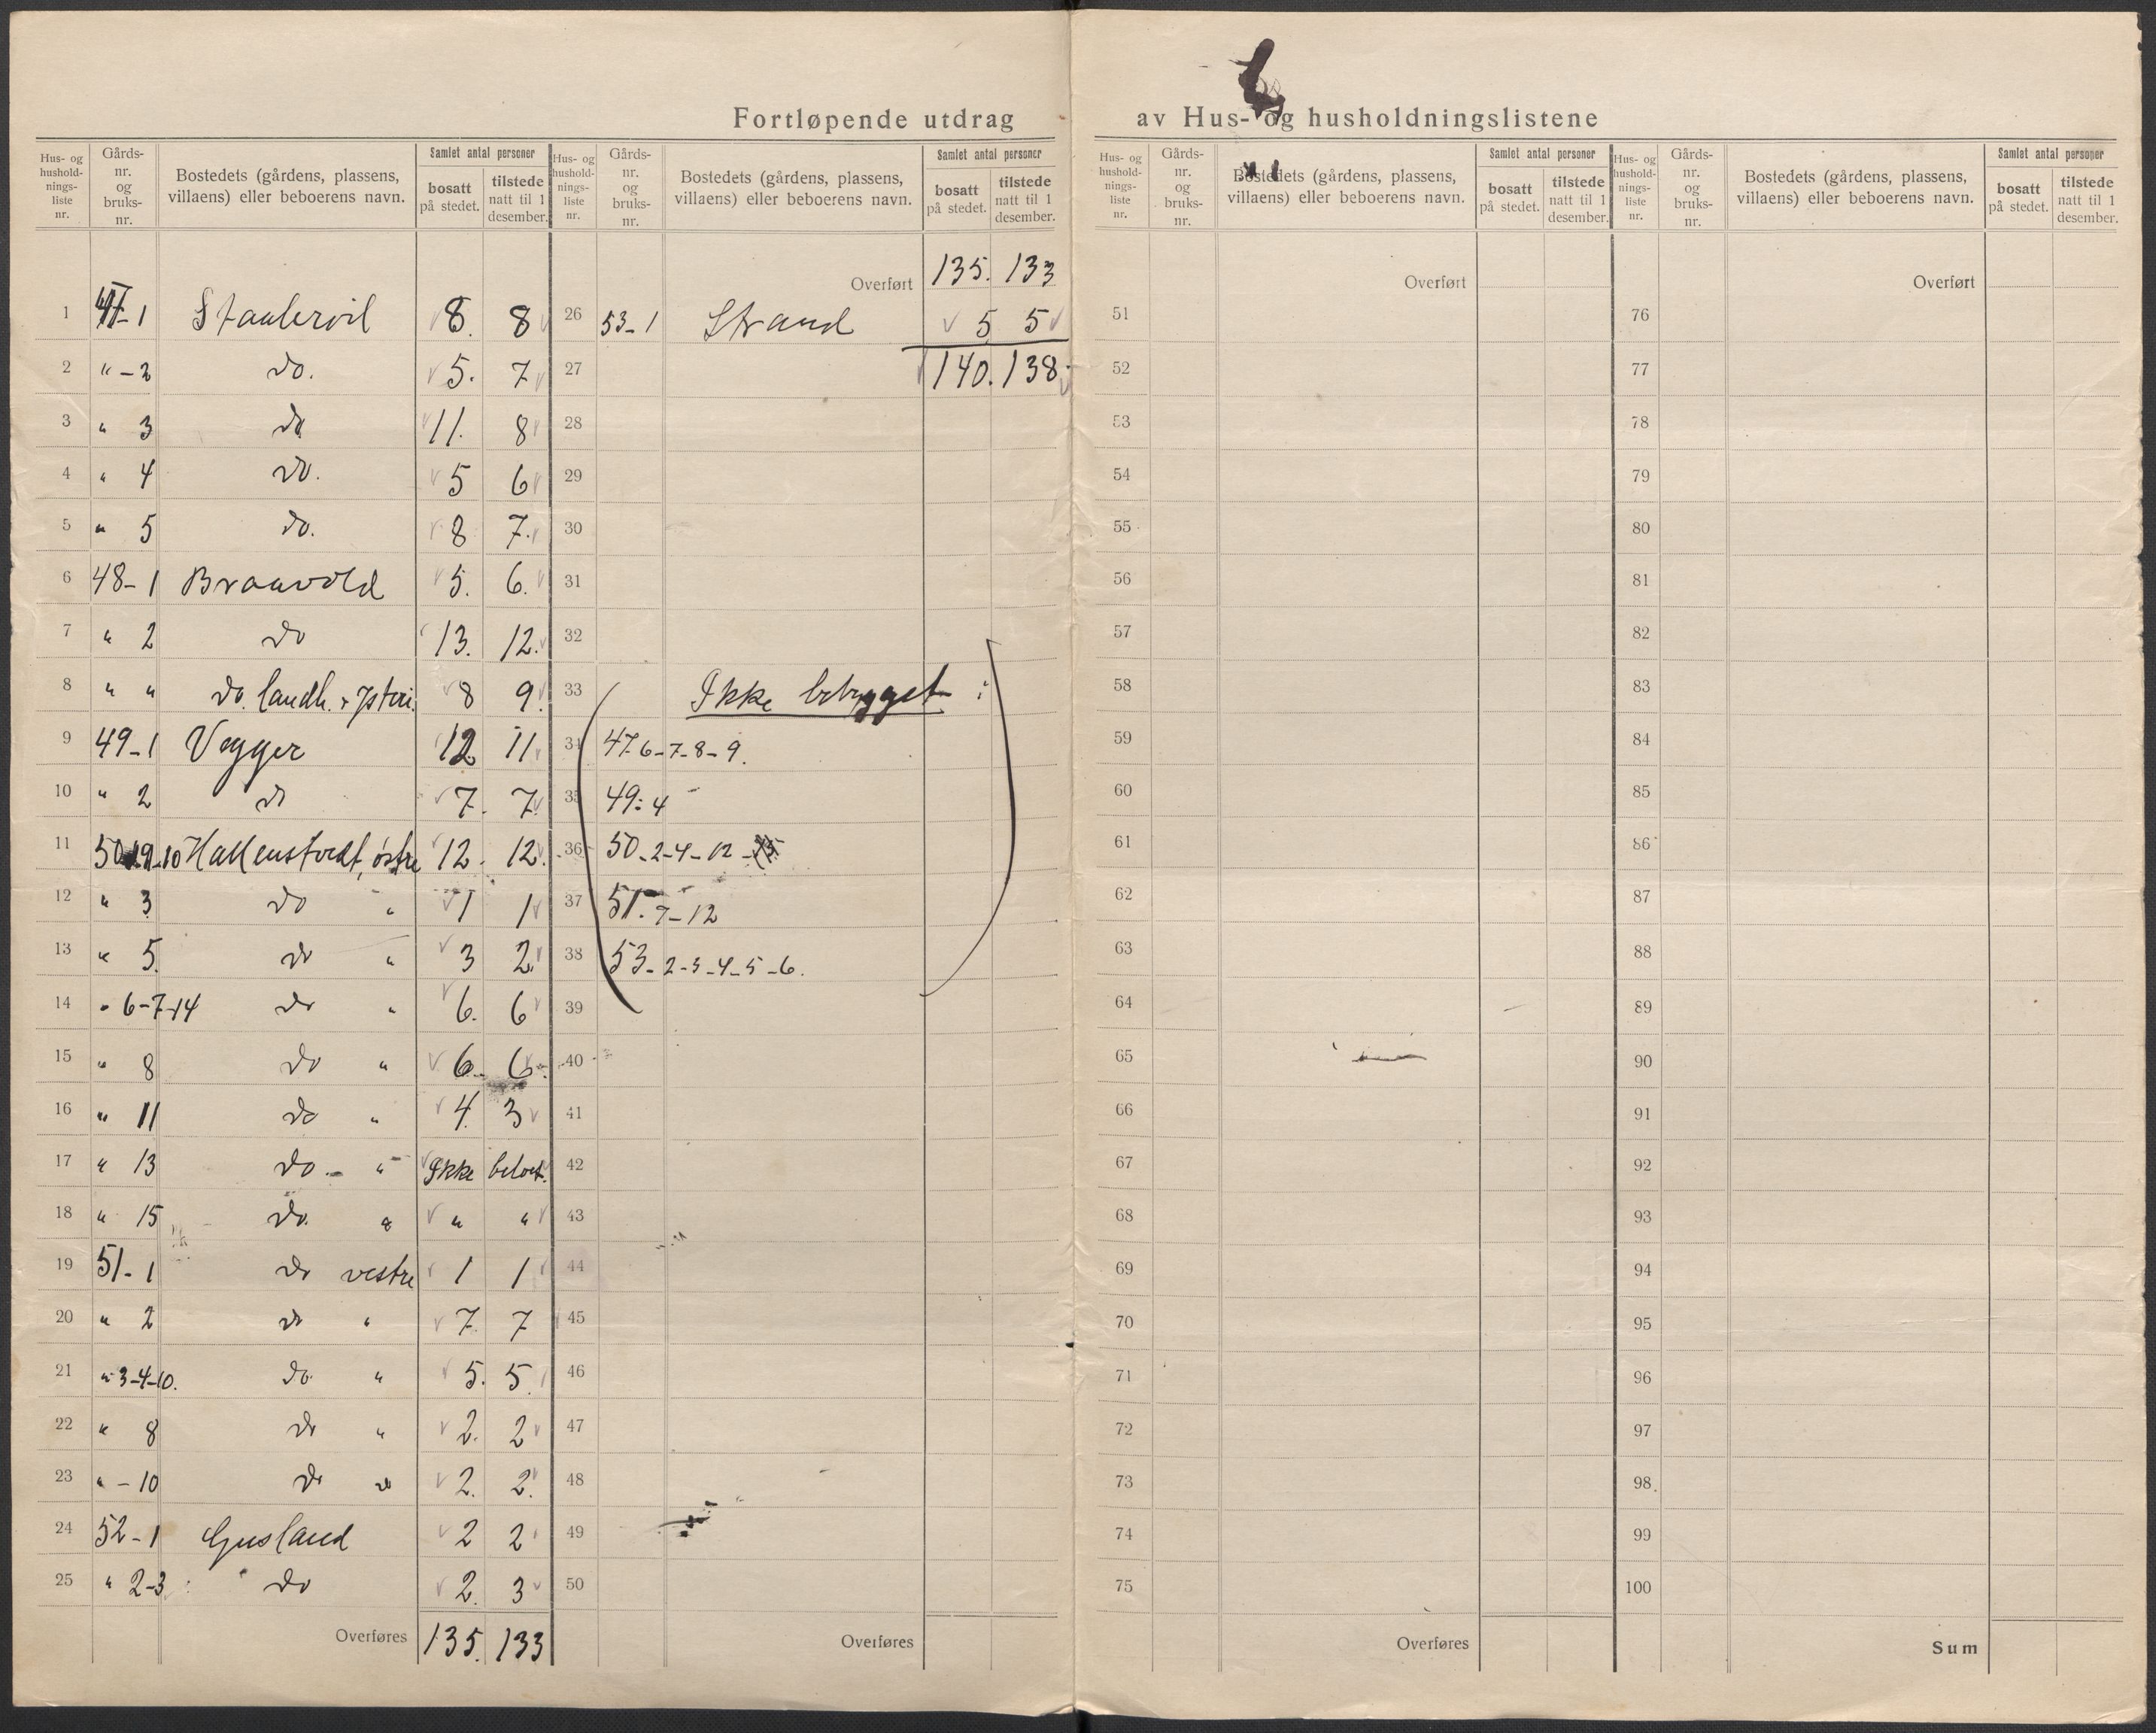 Fortløpende utdrag av Hus- og husholdningslistene
Hus- og hushold- nings- liste nr. | Gårds- nr. og bruks- nr. | Bostedets (gårdens, plassens, villaens) eller beboerens navn. | Samlet antal personer | bosatt på stedet. | tilstede natt til 1 desember.
1 47-1 Staalervil 8. 8
2 " - 2 do. 5. 7
3 " 3 do 11. 8
4 " 4 do. 5 6
5 " 5 do. 8 7.
6 48-1 Braavold 5. 6.
7 " 2 do 13. 12.
8 " " do. landh. + Ysteri. 8 9.
9 49-1 Vegger 12 11
10 " 2 do 7. 7
11 50 1-9-10 Hallenstvedt, østre 12. 12.
12 " 3 do " 1 1
13 " 5. do " 3 2
14 " 6-7-14 do " 6. 6
15 " 8 do " 6 6
16 " 11 do " 4. 3
17 " 13 do. " Ikke beboet.
18 " 15 do. " " "
19 51-1 do vestre 1 1
20 " 2 do " 7. 7
21 " 3-4-10. do. " 5. 5
22 " 8 do " 2. 2
23 " - 10 do " 2. 2.
24 52-1 Gusland 2 2
25 " 2-3 do 2. 3
Overføres 135. 133
Hus- og hushold- nings- liste nr. | Gårds- nr. og bruks- nr. | Bostedets (gårdens, plassens, villaens) eller beboerens navn. | Samlet antal personer | bosatt på stedet. | tilstede natt til 1 desember.
Overført 135. 133
26 53-1 Strand 5 5
27 140. 138
28
29
30
31
32
33 Ikke bebygget :
34 47-6-7-8-9.
35 49: 4
36 50-2-4-12-
37 51. 7-12
38 53-2-3-4-5-6.
39
40
41
42
43
44
45
46
47
48
49
50
Overføres
Hus- og hushold- nings- liste nr. | Gårds- nr. og bruks- nr. | Bostedets (gårdens, plassens, villaens) eller beboerens navn. | Samlet antal personer | bosatt på stedet. | tilstede natt til 1 desember.
Overført
51
52
53
54
55
56
57
58
59
60
61
62
63
64
65
66
67
68
69
70
71
72
73
74
75
Overføres
Hus- og hushold- nings- liste nr. | Gårds- nr. og bruks- nr. | Bostedets (gårdens, plassens, villaens) eller beboerens navn. | Samlet antal personer | bosatt på stedet. | tilstede natt til 1 desember.
Overført
76
77
78
79
80
81
82
83
84
85
86
87
88
89
90
91
92
93
94
95
96
97
98
99
100
Sum